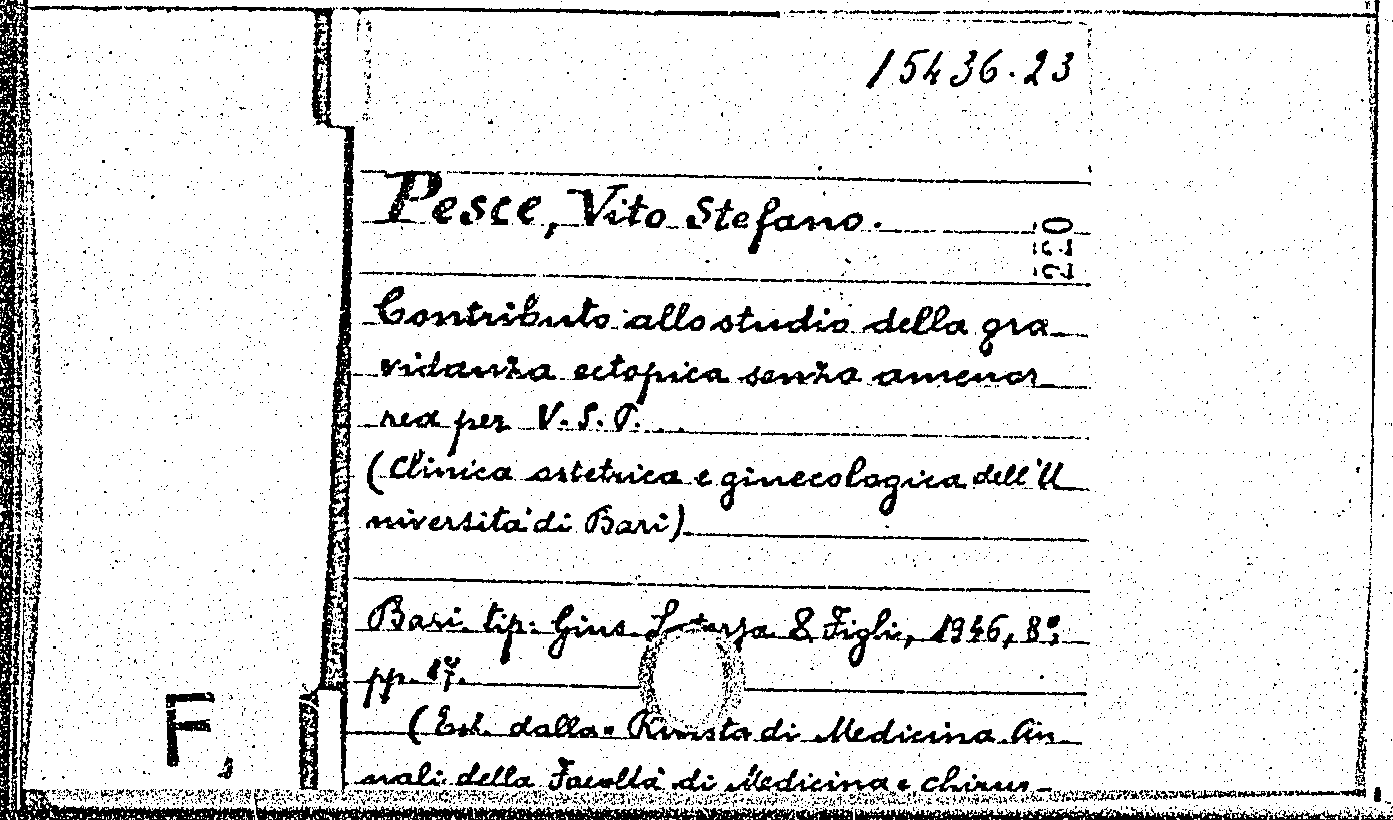 15436.23
Pesce, Vito Stefano.
250
Contributo allo studio della gra
vidanza ectopica senza amenor
rea per V. S. P. . .
(Clinica ostetrica e ginecologica dell'U
niversità di Bari)
Bari. tip. Gius. Laterza & Figli, 1946, 8°,
pp. 17.
(Est. dalla. Rivista di Medicina An
nali della Facoltà di Medicina e chirur
F,